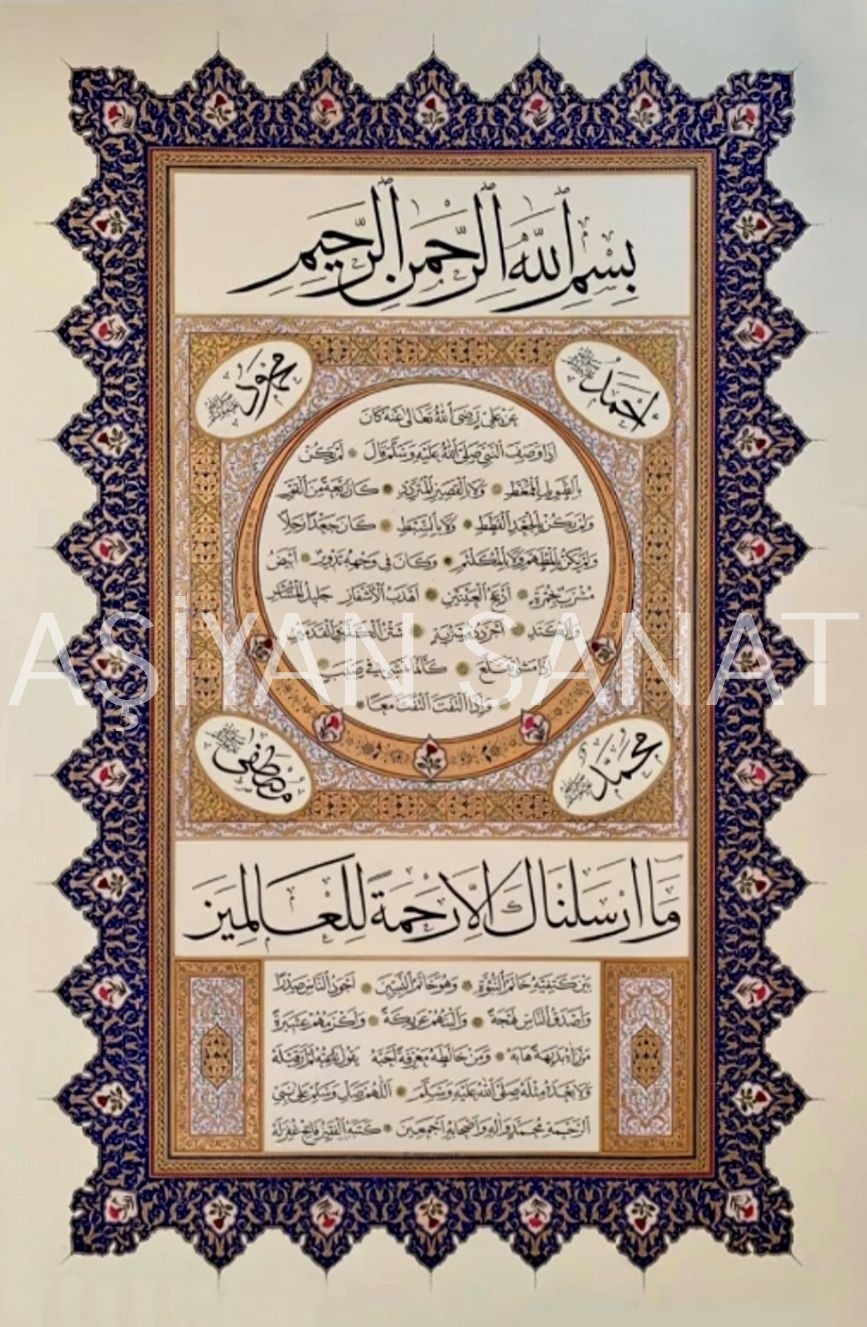 بِسْمِ اللهِ الرَّحْمٰنِ الرَّحِيمِ
احمد
محمود
عن علي رضي الله تعالى عنه كان
إذا وصف النبي صلى الله عليه وسلم قال لم يكن
بالطويل الممغط ولا بالقصير المتردد كان ربعة من القوم
ولم يكن بالجعد القطط ولا بالسبط كان جعدا رجلا
ولم يكن بالمطهم ولا بالمكلثم وكان في وجهه تدوير أبيض
مشرب بحمرة أدعج العينين أهدب الأشفار جليل المشاش
والكتد أجرد ذو مسربة شثن الكفين والقدمين
إذا مشى تقلع كأنما يمشي في صبب
وإذا التفت التفت معا
AŞİYAN SANAT
محمد
مصطفى
وما ارسلناك الا رحمة للعالمين
بين كتفيه خاتم النبوة وهو خاتم النبيين أجود الناس صدرا
وأصدق الناس لهجة وألينهم عريكة وأكرمهم عشيرة
من رآه بديهة هابه ومن خالطه معرفة أحبه يقول ناعته لم أر قبله
ولا بعده مثله صلى الله عليه وسلم اللهم صل وسلم على نبي
الرحمة محمد وآله وأصحابه أجمعين كتبه الفقير غفر له